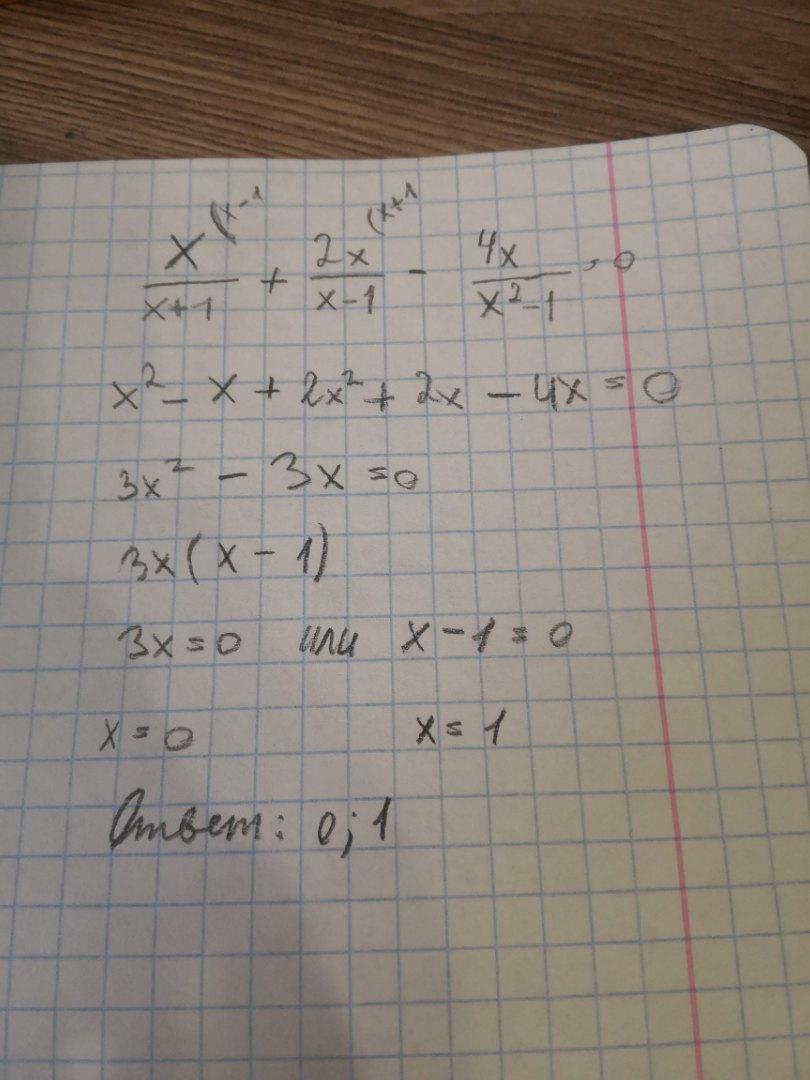 x/(x+1) (x-1 + 2x/(x-1) (x+1 - 4x/(x²-1) = 0
x² - x + 2x² + 2x - 4x = 0
3x² - 3x = 0
3x(x - 1)
3x = 0 или x - 1 = 0
x = 0 x = 1
Ответ: 0; 1